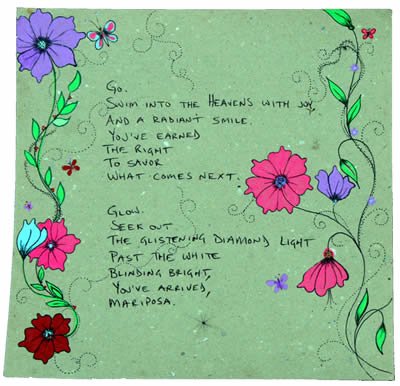 Go.
Swim into the Heavens with joy
And a radiant smile.
You've earned
The right
To savor
What comes next.
Glow.
Seek out
The glistening diamond light
Past the white
Blinding bright,
You've arrived,
Mariposa.